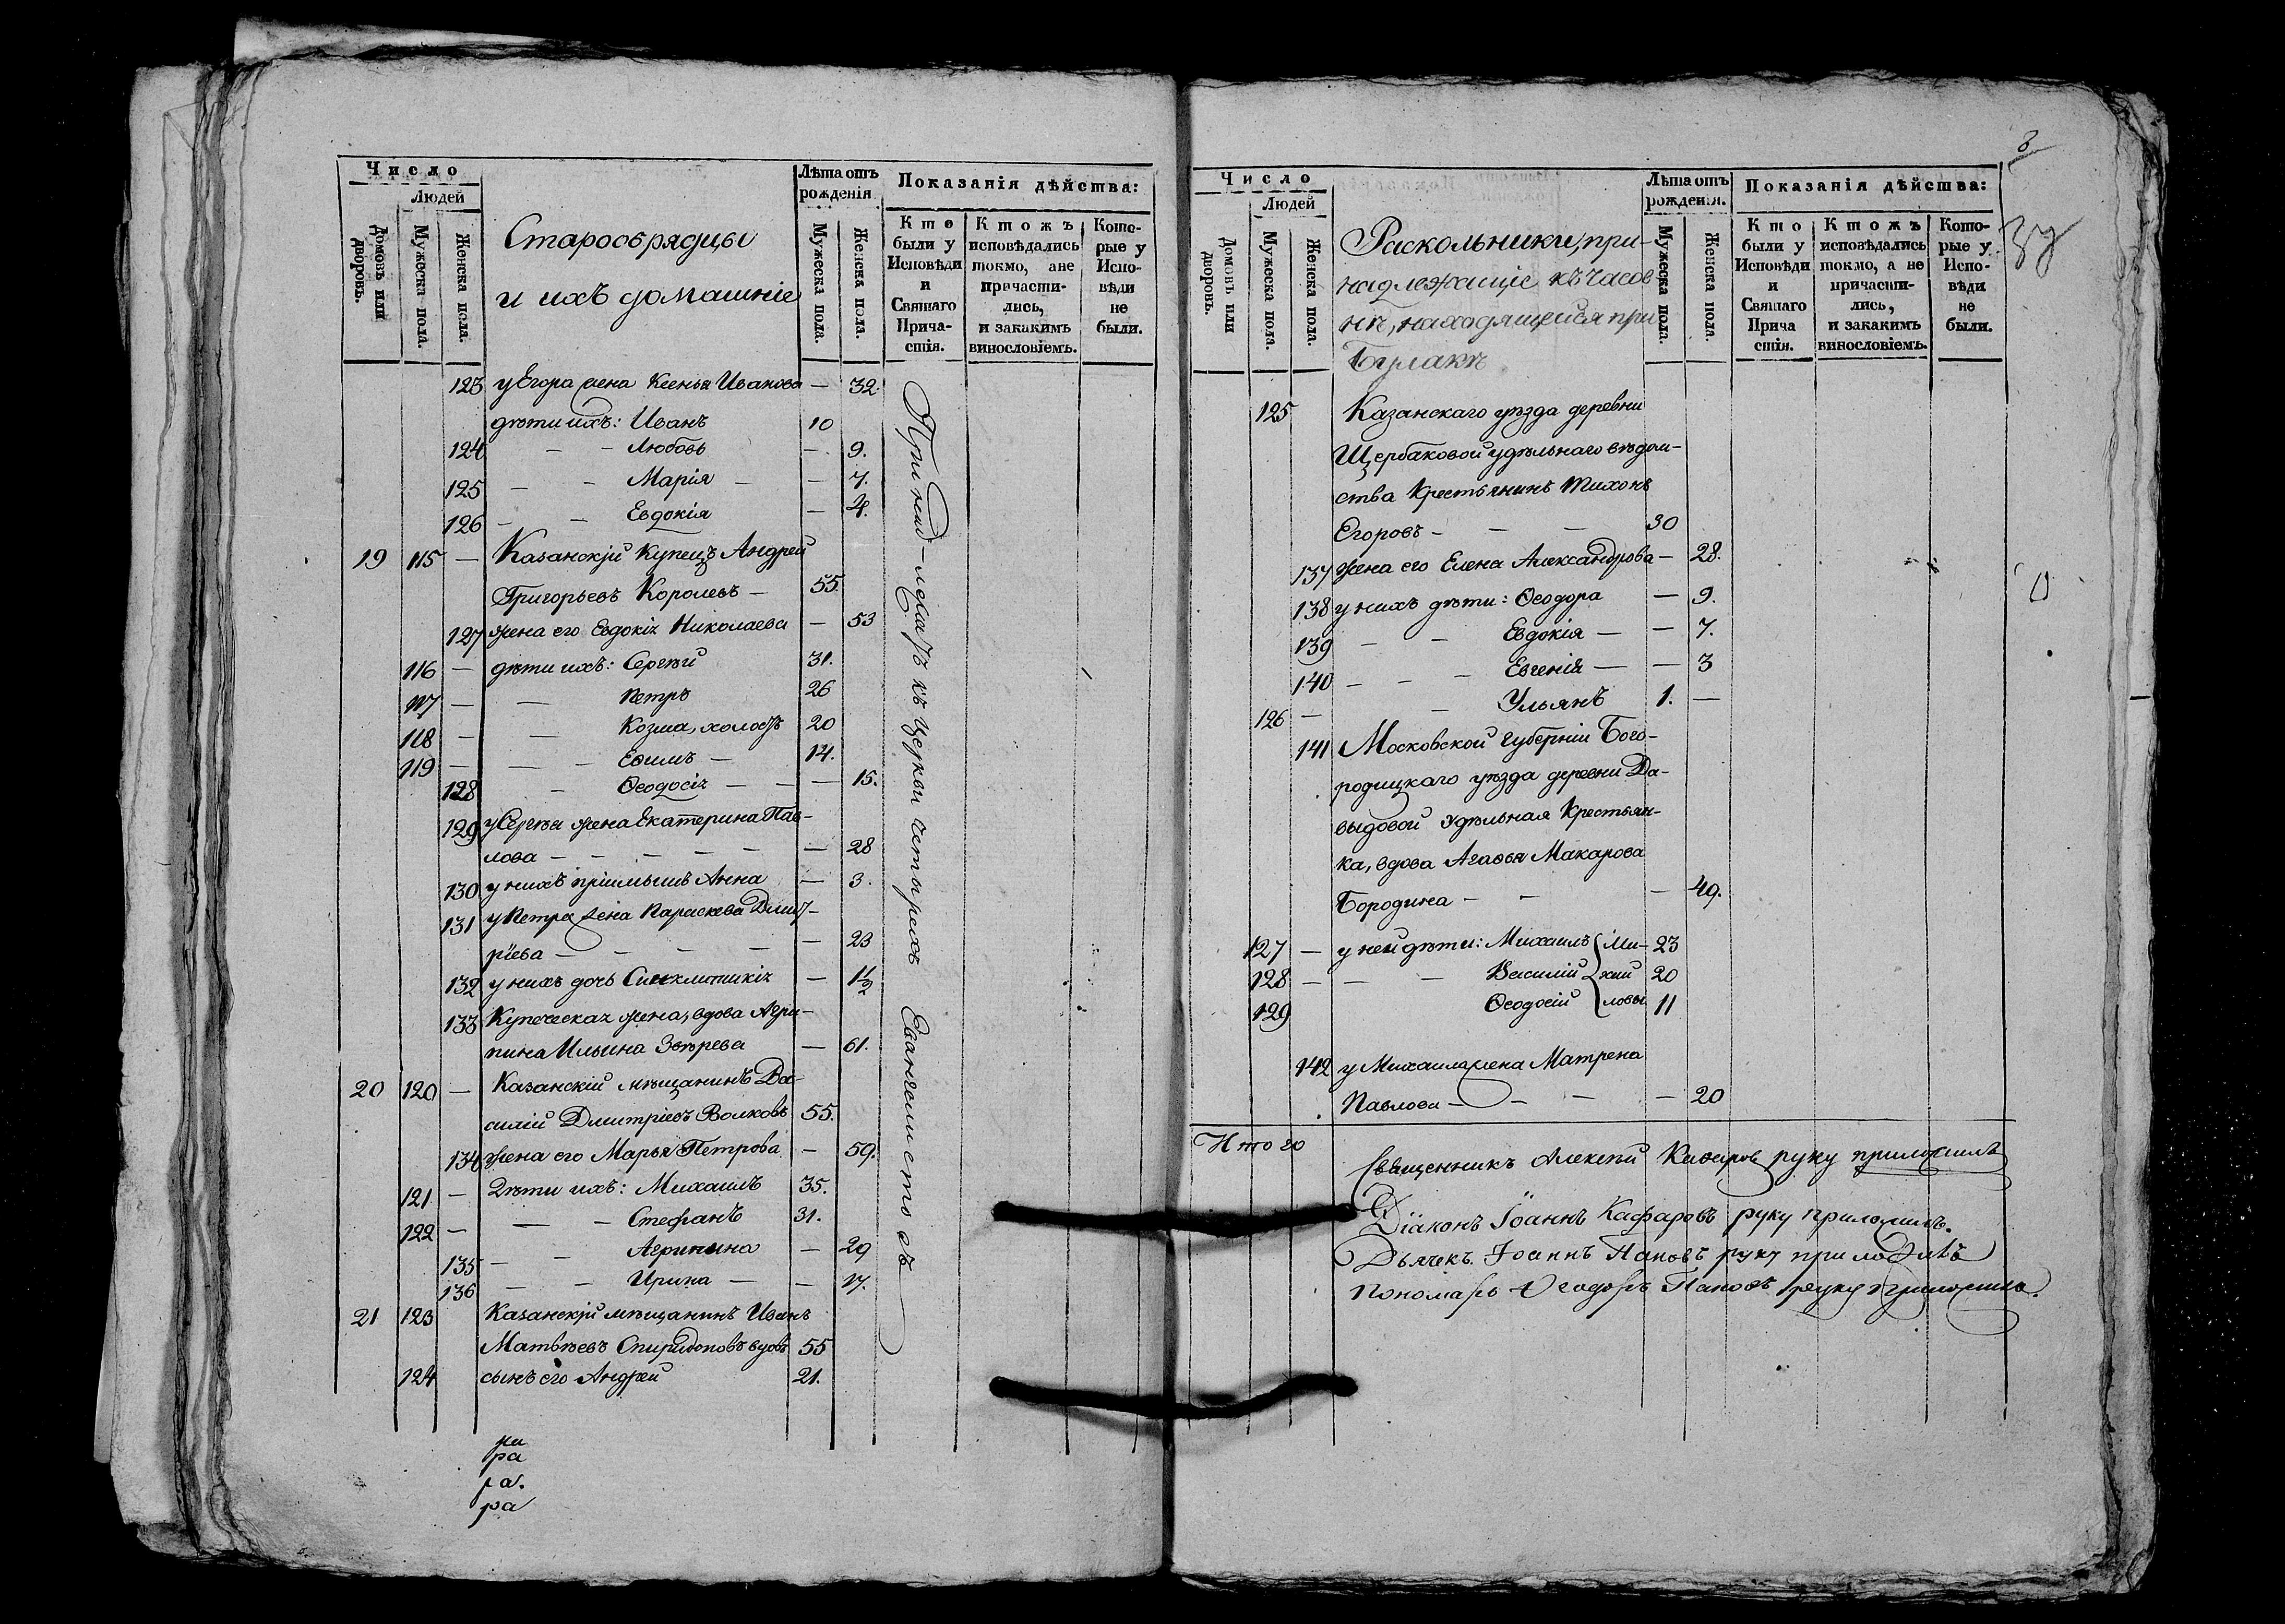 Число
Людей
Домовъ или дворовъ.
Мужеска пола.
Женска пола.
Старообрядцы
и ихъ домашніе
Лѣта отъ рожденія
Мужеска пола.
Женска пола.
Показанія дѣйства:
Кто были у Исповѣди и Святаго Причастія.
Ктожъ исповѣдались токмо, ане причастились, и закакимъ винословіемъ.
Которые у Исповѣди не были.
123 у Егора жена Ксенья Иванова — 32.
дѣти ихъ: Иванъ 10
124 — — Любовь — 9.
125 — — Марія — — 7.
126 — — Евдокія — 4.
19 115 — Казанскій Купецъ Андрей
Григорьевъ Королевъ — 55.
127 жена его Евдокія Николаева — 53
116 — дѣти ихъ: Сергѣй 31.
117 — — Петръ 26
118 — — Козма, холостъ 20
119 — — — Ефимъ — 14.
128 — Ѳеодосія — — — 15.
129 у Сергѣя жена Екатерина Пав-
лова — — — — — — 28
130 у нихъ пріимышъ Анна — 3.
131 у Петра жена Параскева Дмит-
ріева — — — — — 23
132 у нихъ дочь Синклитикія — 1½
133 Купеческая жена, вдова Агри-
пина Ильина Звѣрева — 61.
20 120 — Казанскій мѣщанинъ Ва-
силій Дмитріевъ Волковъ 55.
134 жена его Марья Петрова — 59.
121 — Дѣти ихъ: Михаилъ 35.
122 — — — Стефанъ 31.
135 — — Агрипина — 29
136 — — Ирина — — 17.
21 123 Казанскій мѣщанинъ Иванъ
Матвѣевъ Спиридоновъ вдовъ 55
124 сынъ его Андрей 21.
Принад-лежатъ къ церкви четырехъ Евангелистовъ
ра
ра.
ра
Число
Людей
Домовъ или дворовъ.
Мужеска пола.
Женска пола.
Раскольники, при-
надлежащіе къ часов
нѣ, находящейся при
Булакѣ
Лѣта отъ рожденія.
Мужеска пола.
Женска пола.
Показанія дѣйства:
Кто были у Исповѣди и Святаго Прича стія.
Ктожъ исповѣдались токмо, а не причастились, и закакимъ винословіемъ.
Которые у Исповѣди не были.
125 Казанскаго уѣзда деревни
Щербаковой удѣльнаго вѣдом-
ства Крестьянинъ Тихонъ
Егоровъ — — — 30
137 жена его Елена Александрова — 28.
138 у нихъ дѣти: Ѳеодора — 9.
139 — — Евдокія — — 7.
140 — — — Евгенія — — 3
126 — — Ульянъ 1. —
141 Московской губерніи Бого-
родицкаго уѣзда деревни Да-
выдовой Удѣльная Крестьян-
ка, вдова Агафья Макарова
Бородина — — — 49.
127 — у ней дѣти: Михаилъ Ми- 23
128 — — — Василій хай 20
129 Ѳеодосій ловы 11
142 у Михаила жена Матрена
Павлова — — — — 20
Итого
Священникъ Алексѣй Кафаровъ руку приложилъ
Діаконъ Іоаннъ Кафаровъ руку приложилъ.
Дьячекъ Іоаннъ Пановъ руку приложилъ
Пономарь Ѳеодоръ Пановъ руку приложилъ.